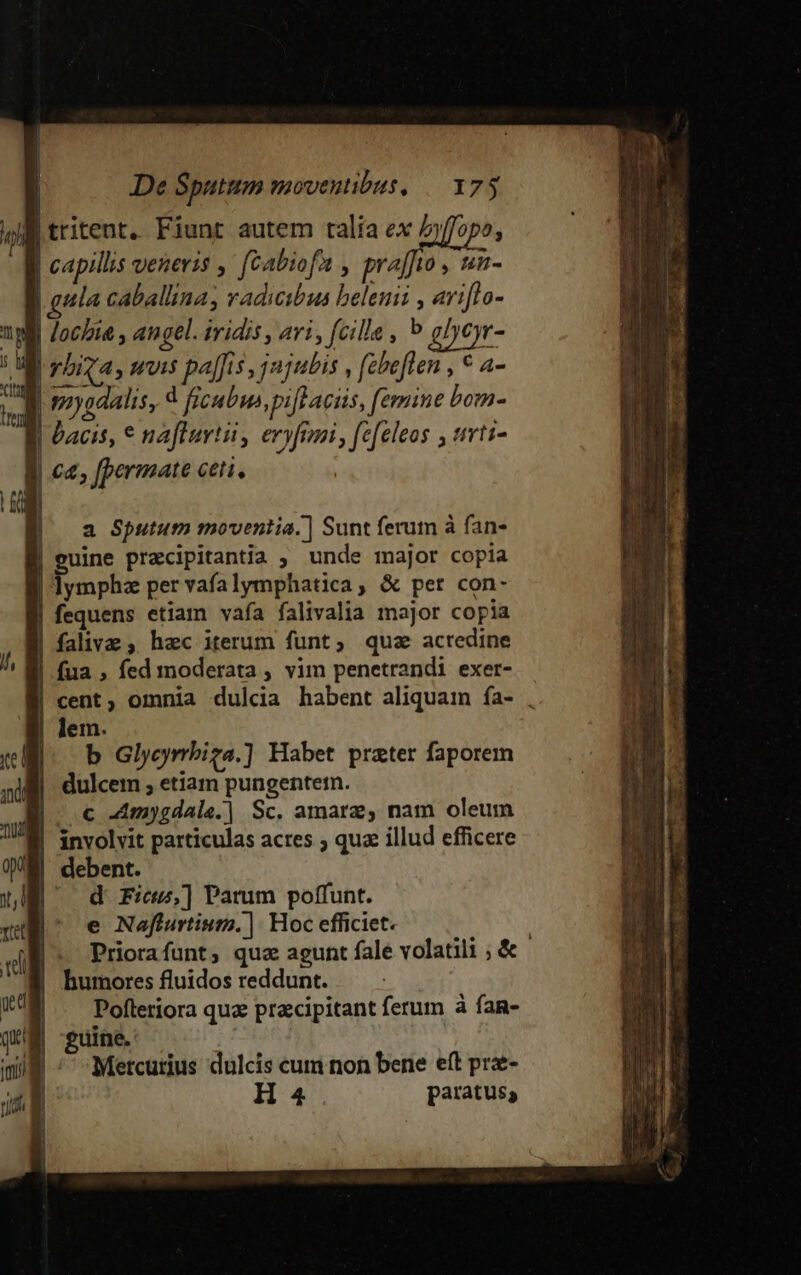 De Sputum moventibus. 175
tritent. Fiunt autem talia ex hyſſopo,
capillis veneris, ſcabioſa, praſſio, un-
gula caballina, radicibus helenii, ariſto-
lochiæ, angel. iridis, ari, ſcillæ, b glycyr-
rhiza, uvis paſſis, jujubis, ſebeſten, c a-
mygdalis, d ficubus, piſtaciis, ſemine bom-
bacis, e naſturtii, eryſimi, ſeſeleos, urti-
cæ, ſpermate ceti.
a Sputum moventia.] Sunt ſerum à ſan-
guine præcipitantia, unde major copia
lymphæ per vaſa lymphatica, & per con-
ſequens etiam vaſa ſalivalia major copia
ſalivæ, hæc iterum ſunt, quæ acredine
ſua, ſed moderata, vim penetrandi exer-
cent, omnia dulcia habent aliquam ſa-
lem.
b Glycyrrhiza.] Habet præter ſaporem
dulcem, etiam pungentem.
c Amygdalæ.] Sc. amaræ, nam oleum
involvit particulas acres, quæ illud efficere
debent.
d Ficus,] Parum poſſunt.
e Naſturtium.] Hoc efficiet.
Priora ſunt, quæ agunt ſale volatili, &
humores fluidos reddunt.
Poſteriora quæ præcipitant ſerum à ſan-
guine.
Mercurius dulcis cum non bene eſt præ-
H 4 paratus,